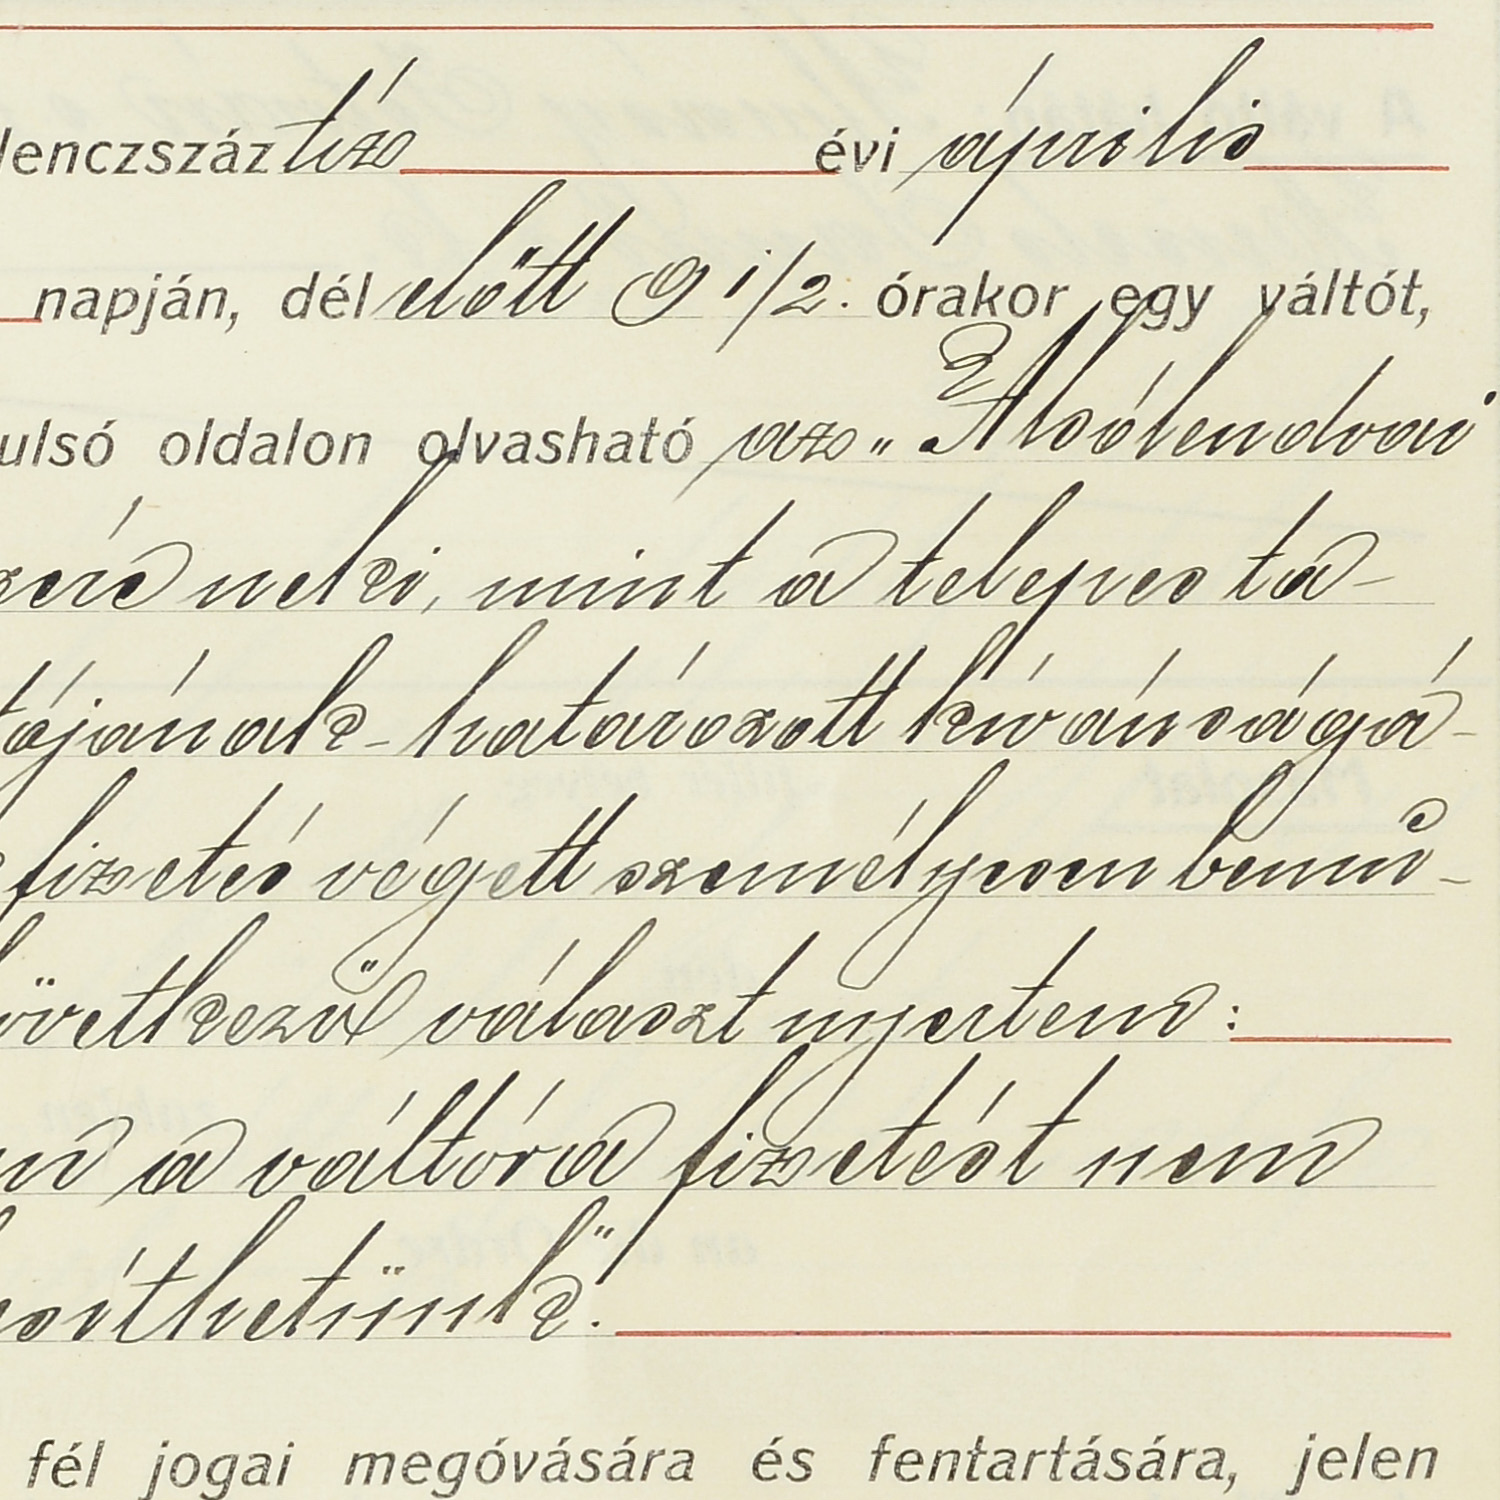 lenczszáz tíz évi április
napján, dél előtt 9 1/2. órakor egy váltót,
ulsó oldalon olvasható az „Alsólendvai
neki, mint a telepes ta-
tójának - határozott kívánságá-
fizetés végett személyesen bemu-
övetkező választ nyertem:
a váltóra fizetést nem
esíthetünk".
fél jogai megóvására és fentartására, jelen